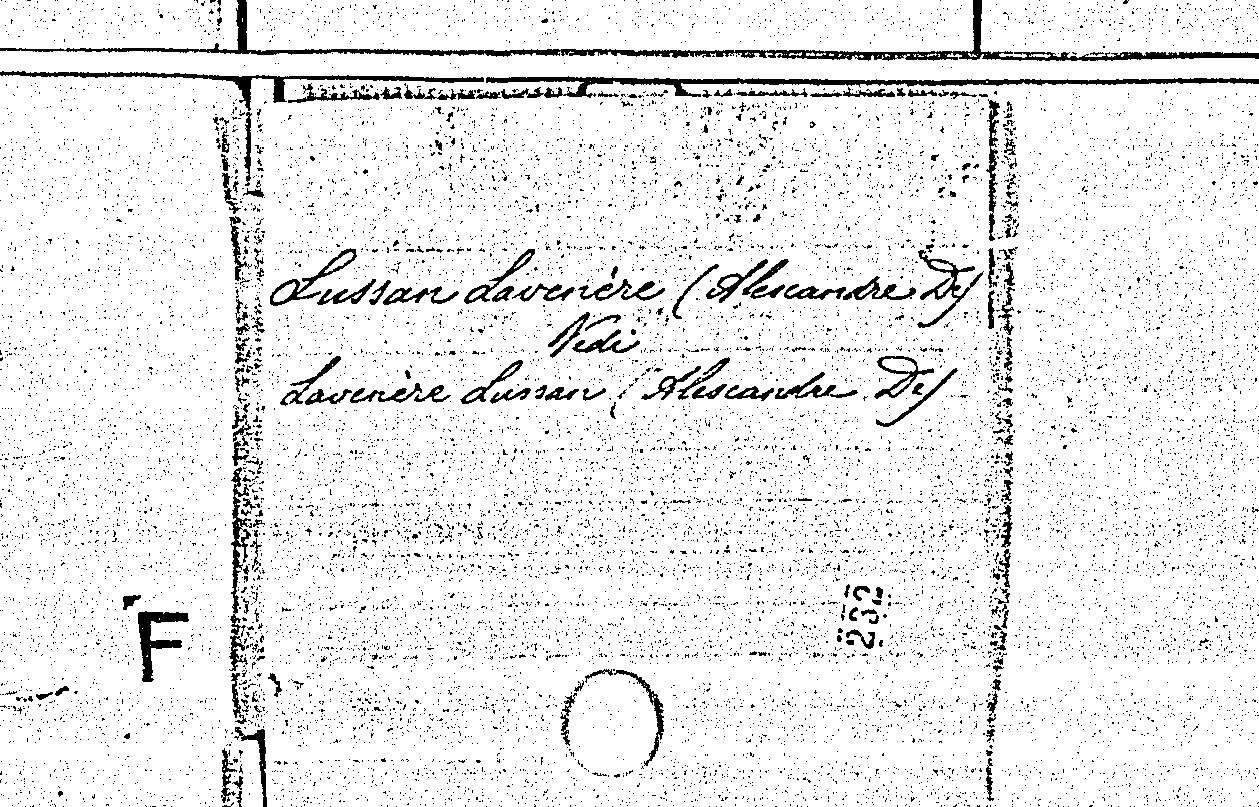 Lussan Lavenère (Alescandre De)
Vedi
Lavenère Lussan (Alescandre De)
F
232